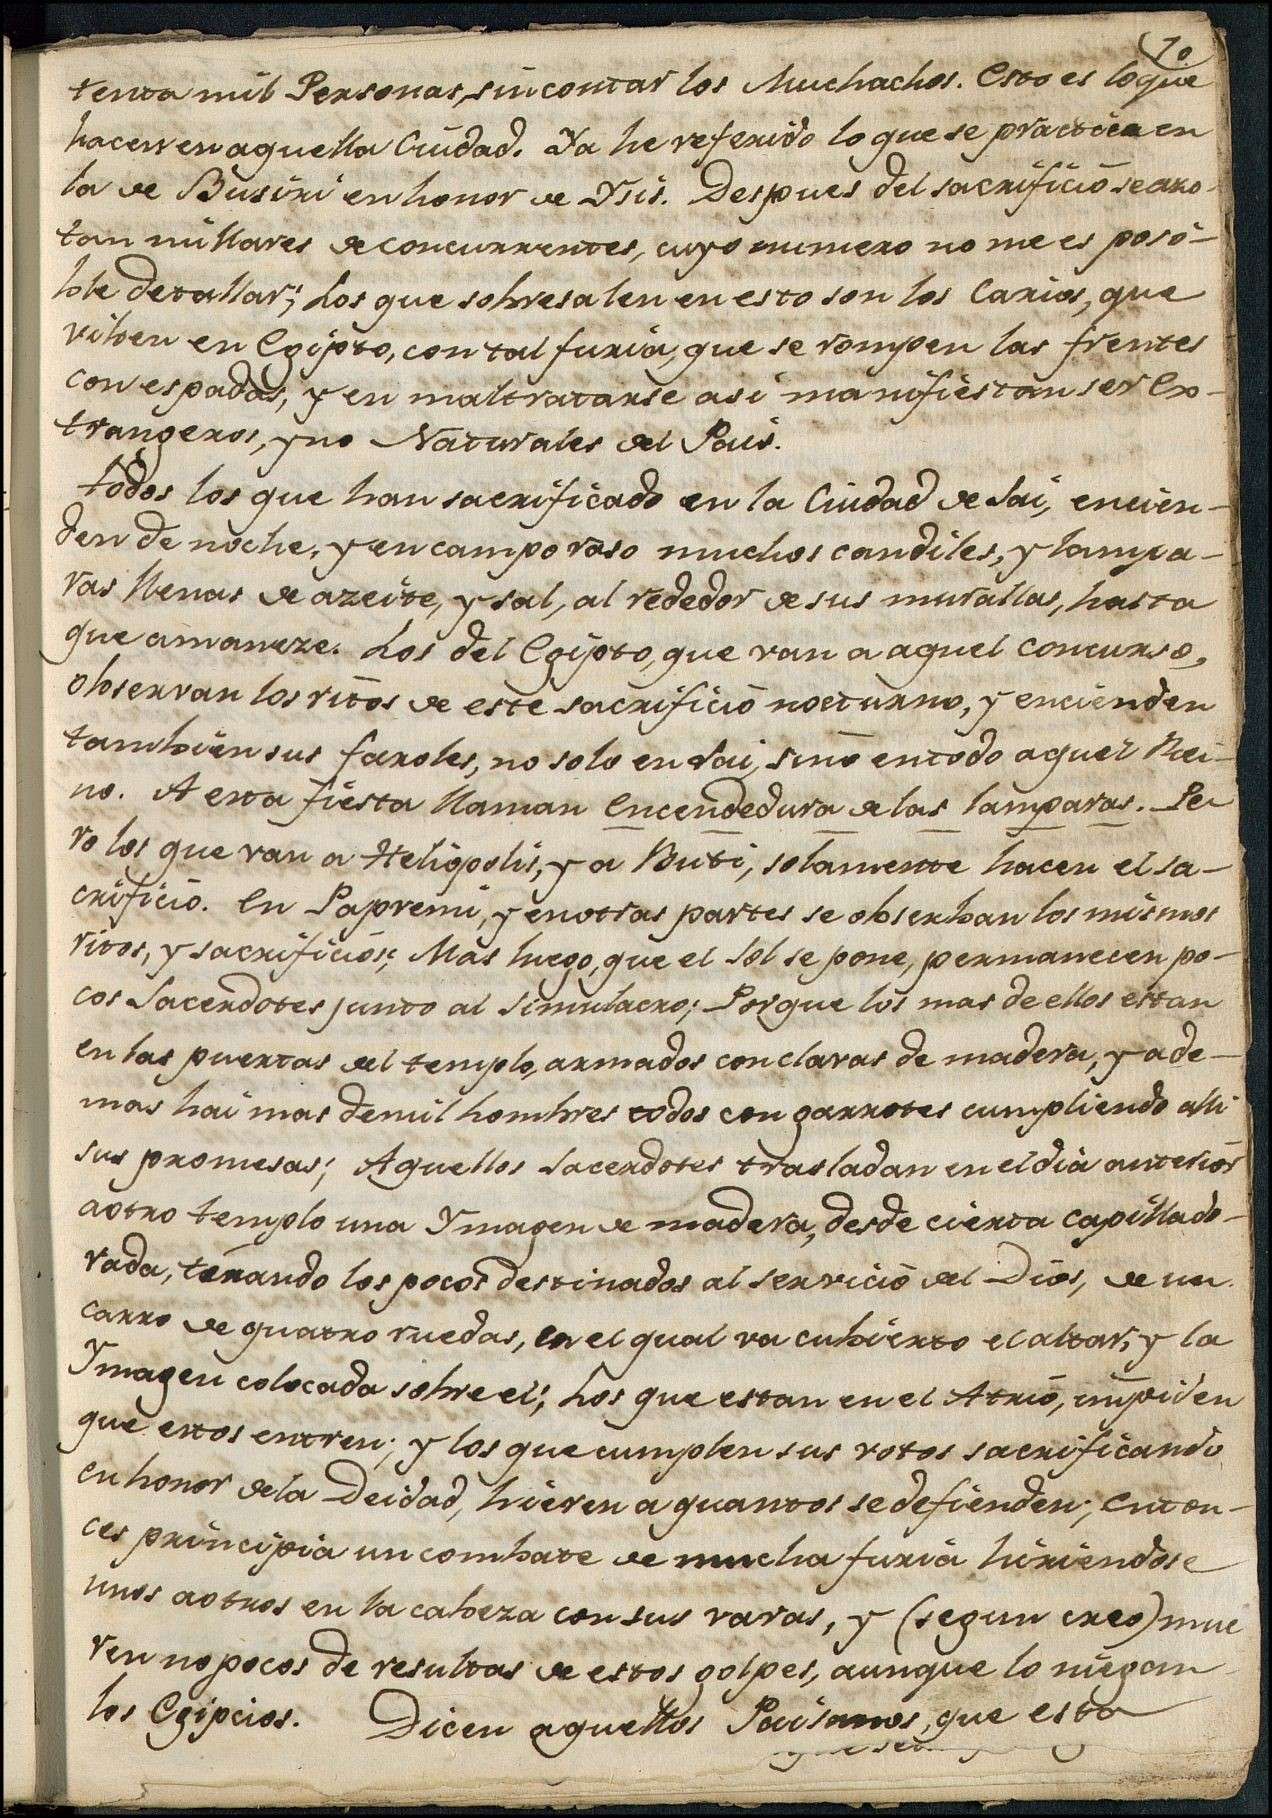 70
tenta mil Personas, sin contar los Muchachos. Esto es lo que
hacen en aquella Ciudad. Ya he referido lo que se practica en
la de Busiri en honor de Ysis. Despues del sacrificio se azo-
tan millares de concurrentes, cuyo numero no me es posi-
ble detallar; Los que sobresalen en esto son los Carios, que
viben en Egipto, con tal furia, que se rompen las frentes
con espadas, y en maltratarse asi manifiestan ser Ex-
trangeros, y no Naturales del Pais.
Todos los que han sacrificado en la Ciudad de Sai, encien-
den de noche, y en campo raso muchos candiles, y lampa-
ras llenas de azeite, y sal, al rededor de sus murallas, hasta
que amaneze. Los del Egipto, que van a aquel concurso,
observan los ritos de este sacrificio nocturno, y encienden
tambien sus faroles, no solo en Sai, sino en todo aquel Rei-
no. A esta fiesta llaman Encendedura de las lamparas. Pe-
ro los que van a Heliopolis, y a Buti, solamente hacen el sa-
crificio. En Papremi, y en otras partes se obserban los mismos
ritos, y sacrificios; Mas luego, que el Sol se pone, permanecen po-
cos Sacerdotes junto al Simulacro; Porque los mas de ellos estan
en las puertas del templo, armados con clavas de madera, y ade-
mas hai mas de mil hombres todos con garrotes cumpliendo alli
sus promesas; Aquellos Sacerdotes trasladan en el dia anterior
a otro templo una Ymagen de madera, desde cierta capilla do-
rada, tirando los pocos destinados al servicio del Dios, de un
carro de quatro ruedas, en el qual va cubierto el altar, y la
Ymagen colocada sobre el; Los que estan en el Atrio, impiden
que estos entren; y los que cumplen sus votos sacrificando
en honor de la Deidad, hieren a quantos se defienden; Enton-
ces principia un combate de mucha furia hiriendose
unos a otros en la cabeza con sus varas, y (segun creo) mue
ren no pocos de resultas de estos golpes, aunque lo niegan
los Egipcios. Dicen aquellos Paisanos, que esta